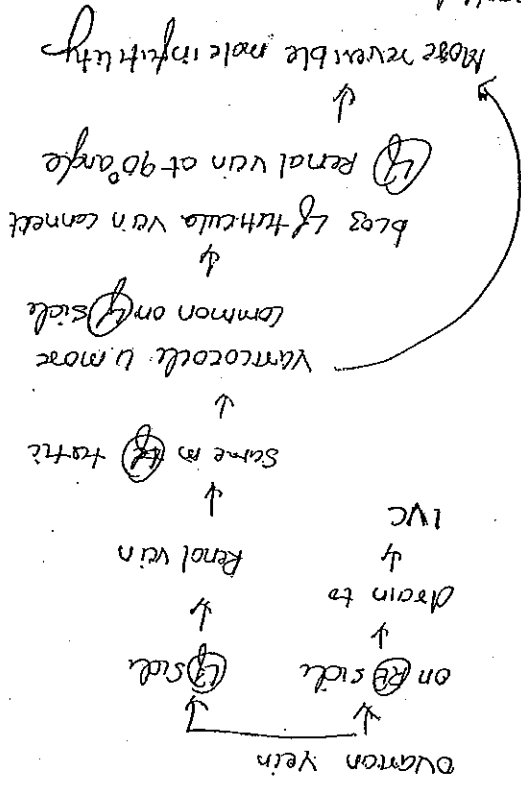 Ovarian vein
on Rt side
Lf side
drain to
Renal vein
IVC
Same in Lf testic
Varicocele is more
common on Lf side
bcoz Lf testicula vein connect
Lf Renal vein at 90° angle
Most reversible male infertility